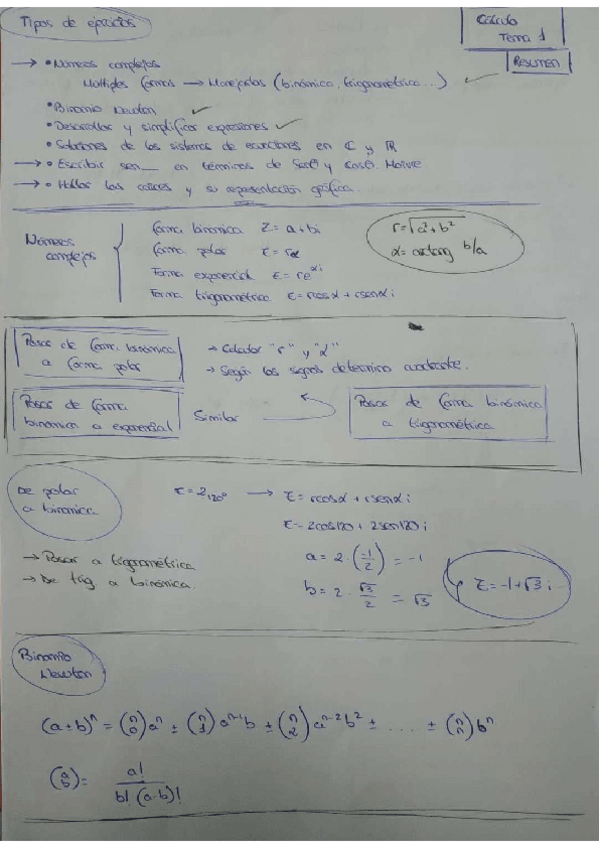 Tipos de ejercicios
Cálculo
Tema 1
RESUMEN
→ • Números complejos
Múltiples formas → Manejarlas (binómica, trigonométrica...) ✓
• Binomio Newton ✓
• Desarrollar y simplificar expresiones ✓
• Soluciones de los sistemas de ecuaciones en ℂ y ℝ
→ • Escribir sen__ en términos de Senθ y Cosθ. Moivre
→ • Hallar las raíces y su representación gráfica.
Números
complejos
Forma binomica Z = a + bi
Forma polar z = rα
Forma exponencial z = re^αi
Forma trigonométrica z = rcosα + rsenα i
r = √a²+b²
α = arctang b/a
Pasar de forma binomica
a forma polar
→ Calcular "r" y "α"
→ Según los signos determino cuadrante.
Pasar de forma
binomica a exponencial
Similar
Pasar de forma binómica
a trigonométrica
De polar
a binomica
z = 2 120° → z = rcosα + rsenα i
z = 2cos120 + 2sen120 i
→ Pasar a trigonométrica
→ De trig a binómica.
a = 2 · (-1/2) = -1
b = 2 · √3/2 = √3
z = -1 + √3 i
Binomio
Newton
(a ± b)ⁿ = (n 0) aⁿ ± (n 1) aⁿ⁻¹ b ± (n 2) aⁿ⁻² b² ± ..... ± (n n) bⁿ
(a b) = a! / b! (a-b)!